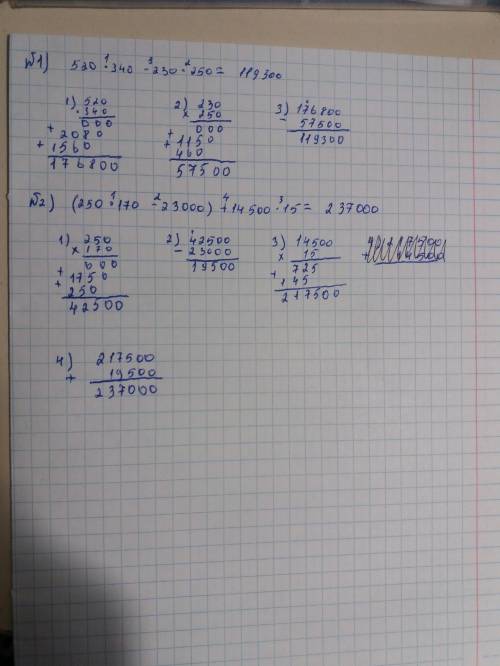 №1) 520 · 340 - 230 · 250 = 119300
1 3 2
1) 520
· 340
000
+ 2080
+ 1560
176800
2) 230
× 250
000
+ 1150
+ 460
57500
3) 176800
- 57500
119300
№2) (250 · 170 - 23000) + 14500 · 15 = 237000
1 2 4 3
1) 250
× 170
000
+ 1750
+ 250
42500
2) 42500
- 23000
19500
3) 14500
× 15
725
+ 145
217500
4) 217500
+ 19500
237000